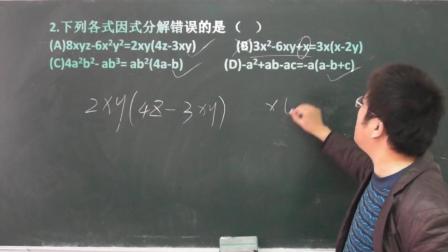 2.下列各式因式分解错误的是（ ）
(A)8xyz-6x²y²=2xy(4z-3xy) (B)3x²-6xy+x=3x(x-2y)
(C)4a²b²- ab³= ab²(4a-b) (D)-a²+ab-ac=-a(a-b+c)
2xy(4z-3xy) x(